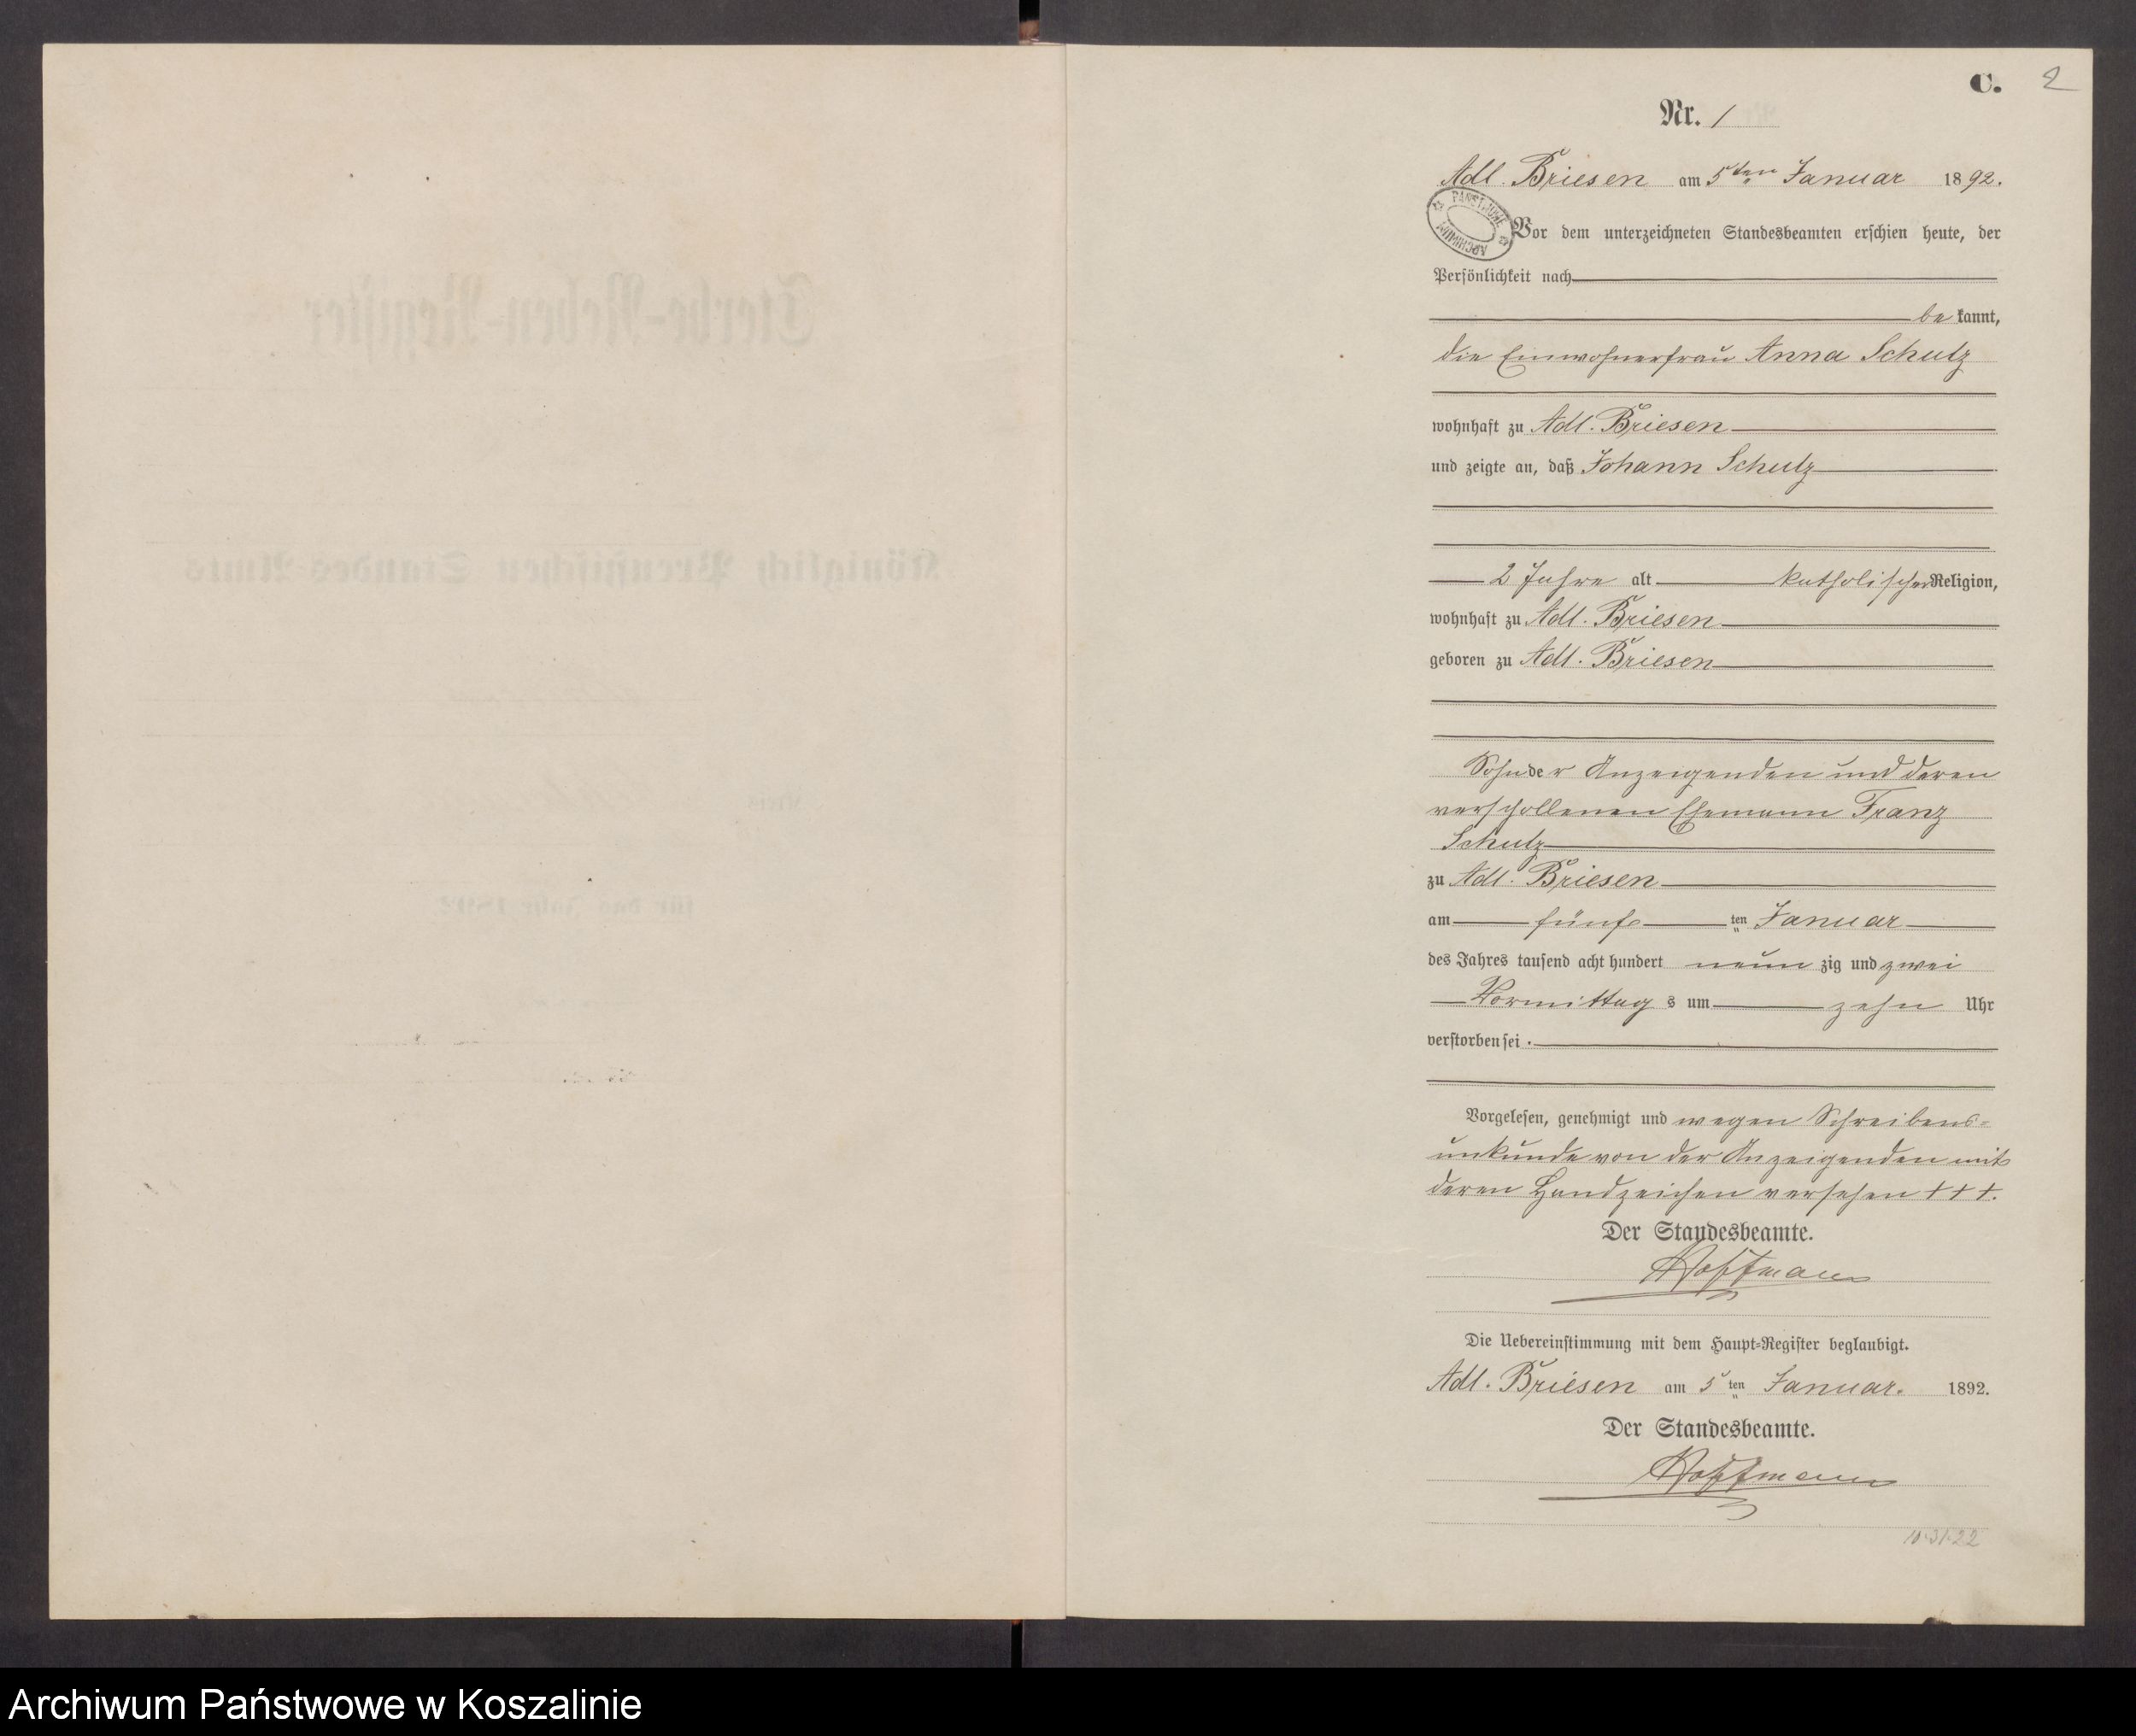 C. 2
Nr. 1
Adl. Briesen am 5ten Januar 1892.
PAŃSTWOWE ARCHIWUM
Vor dem unterzeichneten Standesbeamten erschien heute, der
Persönlichkeit nach
bekannt,
die Einwohnerfrau Anna Schulz
wohnhaft zu Adl. Briesen
und zeigte an, daß Johann Schulz
2 Jahre alt katholischer Religion,
wohnhaft zu Adl. Briesen
geboren zu Adl. Briesen
Sohn der Anzeigenden und deren
verschollenen Ehemann Franz
Schulz
zu Adl. Briesen
am fünf ten Januar
des Jahres tausend acht hundert neun zig und zwei
Vormittag s um zehn Uhr
verstorben sei.
Vorgelesen, genehmigt und wegen Schreibens-
unkunde von der Anzeigenden mit
deren Handzeichen versehen +++.
Der Standesbeamte.
Hoffmann
Die Uebereinstimmung mit dem Haupt-Register beglaubigt.
Adl. Briesen am 5ten Januar. 1892.
Der Standesbeamte.
Hoffmann
Archiwum Państwowe w Koszalinie